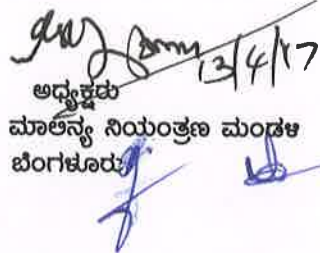 13/4/17
ಅಧ್ಯಕ್ಷರು
ಮಾಲಿನ್ಯ ನಿಯಂತ್ರಣ ಮಂಡಳಿ
ಬೆಂಗಳೂರು